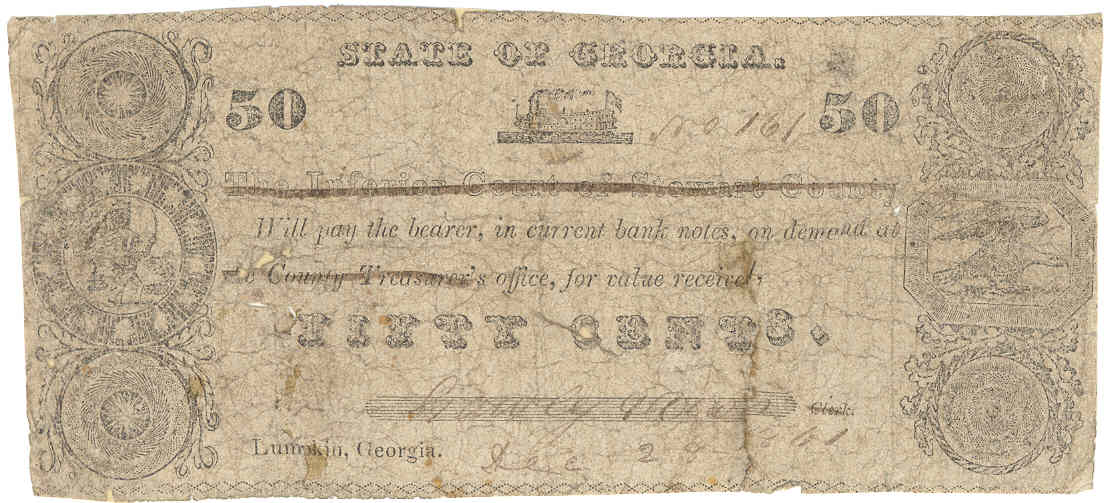 STATE OF GEORGIA.
50 No 161 50
The Inferior Court of Stewart County
Will pay the bearer, in current bank notes, on demand at
County Treasurer's office, for value received,
FIFTY CENTS.
Clerk.
Lumpkin, Georgia. Dec 61